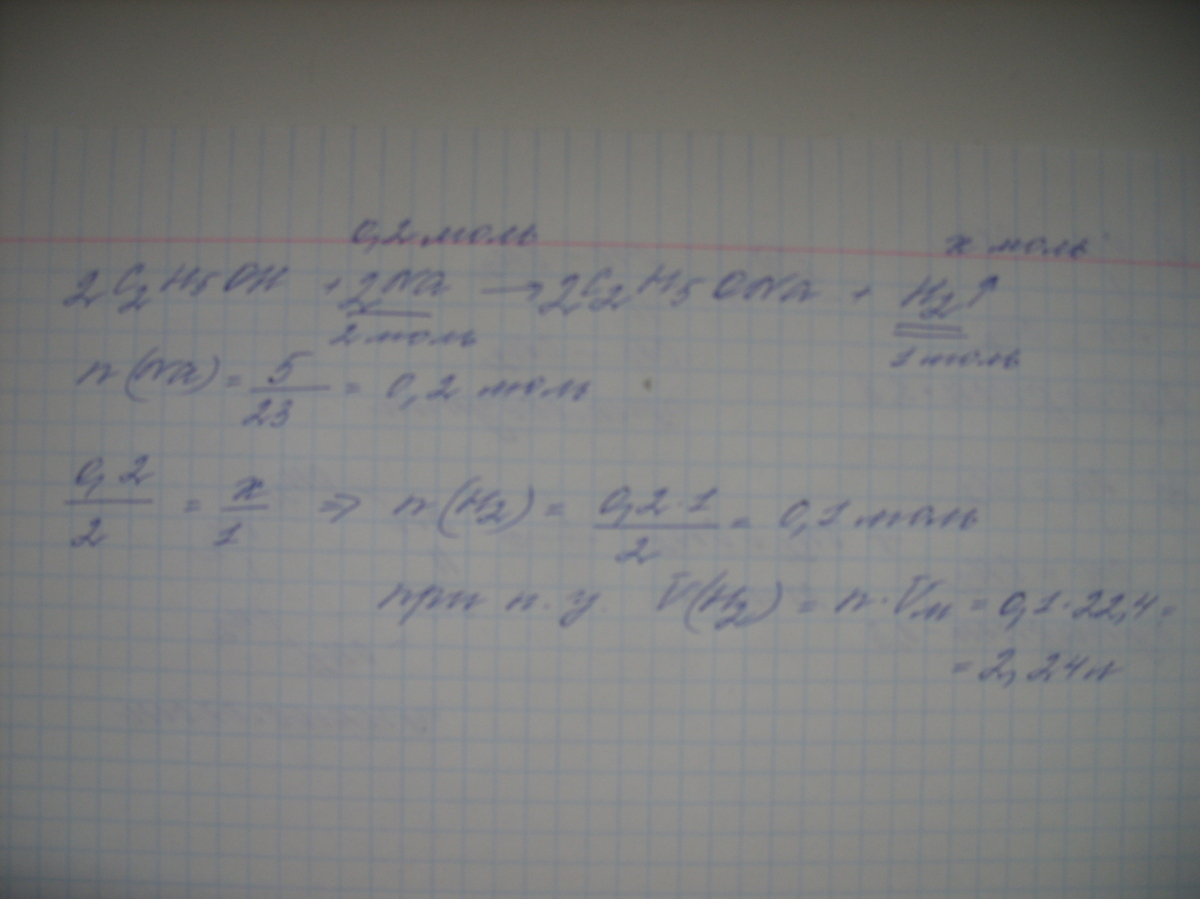 0,2 моль x моль
2C₂H₅OH + 2Na → 2C₂H₅ONa + H₂↑
2 моль 1 моль
n(Na) = 5/23 = 0,2 моль
0,2/2 = x/1 ⇒ n(H₂) = 0,2·1/2 = 0,1 моль
при н.у. V(H₂) = n·Vм = 0,1·22,4 =
= 2,24 л